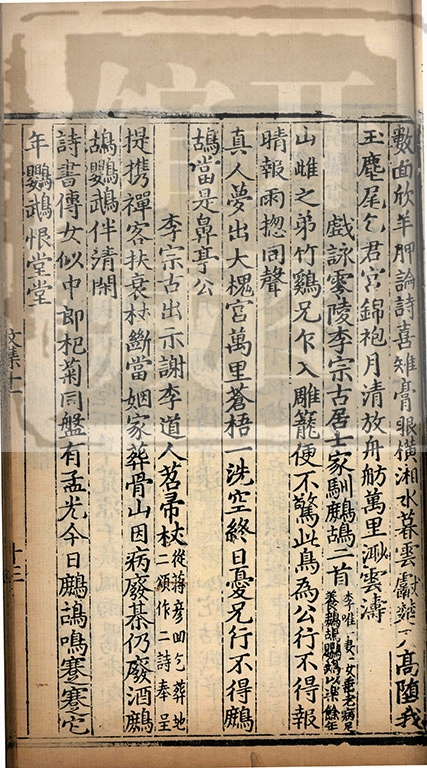 數面欣羊胛論詩喜雉膏眼橫湘水暮雲獻楚高随我
玉麈尾乞君宮錦袍月清放舟舫萬里渺雲濤
戲詠零陵李宗古居士家馴鷓鴣二首
李唯一妻一女垂老病足
養鷓鴣鸚鵡以樂餘年
山雌之弟竹鷄兄乍入雕籠便不驚此鳥為公行不得報
晴報雨揔同聲
真人夢出大槐宮萬里蒼梧一洗空終日憂兄行不得鷓
鴣當是鼻亭公
李宗古出示謝李道人苕帚杖
從蔣彥回乞葬地
二頌作二詩奉呈
提携禪客扶衰杖斷當姻家葬骨山因病廢碁仍廢酒鷓
鴣鸚鵡伴清閑
詩書傳女似中郎杞菊同盤有孟光今日鷓鴣鳴蹇蹇它
年鸚鵡恨堂堂
文集十一
十三